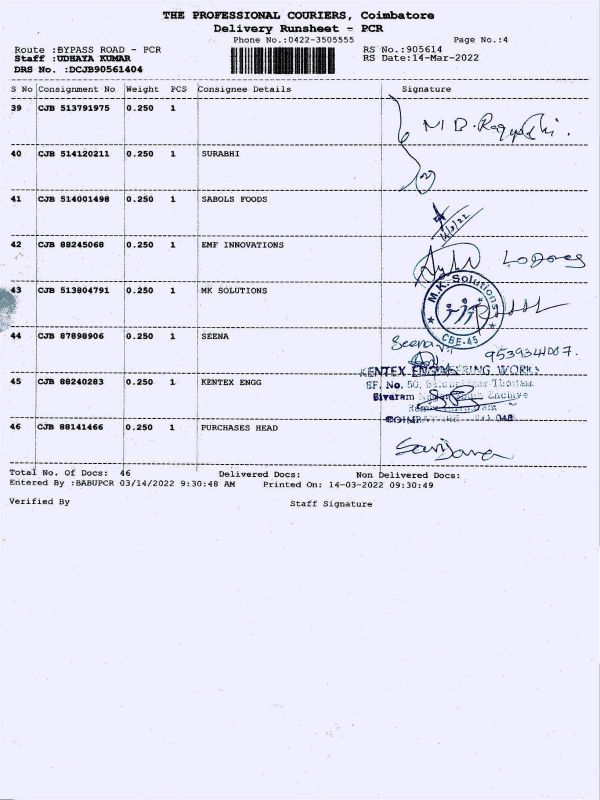 THE PROFESSIONAL COURIERS, Coimbatore
Delivery Runsheet - PCR
Phone No.:0422-3505555 Page No.:4
Route :BYPASS ROAD - PCR RS No.:905614
Staff :UDHAYA KUMAR RS Date:14-Mar-2022
DRS No. :DCJB90561404
S No Consignment No Weight PCS Consignee Details Signature
39 CJB 513791975 0.250 1
40 CJB 514120211 0.250 1 SURABHI
41 CJB 514001498 0.250 1 SABOLS FOODS
42 CJB 88245068 0.250 1 EMF INNOVATIONS
43 CJB 513804791 0.250 1 MK SOLUTIONS
M.K. Solutions
CBE-45
44 CJB 87898906 0.250 1 SEENA Seena
9539341007.
KENTEX ENGINEERING WORKS
SF. No. 50,
45 CJB 88240283 0.250 1 KENTEX ENGG
Sivaram
46 CJB 88141466 0.250 1 PURCHASES HEAD
Total No. Of Docs: 46 Delivered Docs: Non Delivered Docs:
Entered By :BABUPCR 03/14/2022 9:30:48 AM Printed On: 14-03-2022 09:30:49
Verified By Staff Signature